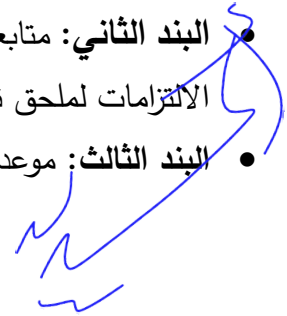 • البند الثاني: متابع
الالتزامات لملحق
• البند الثالث: موعد